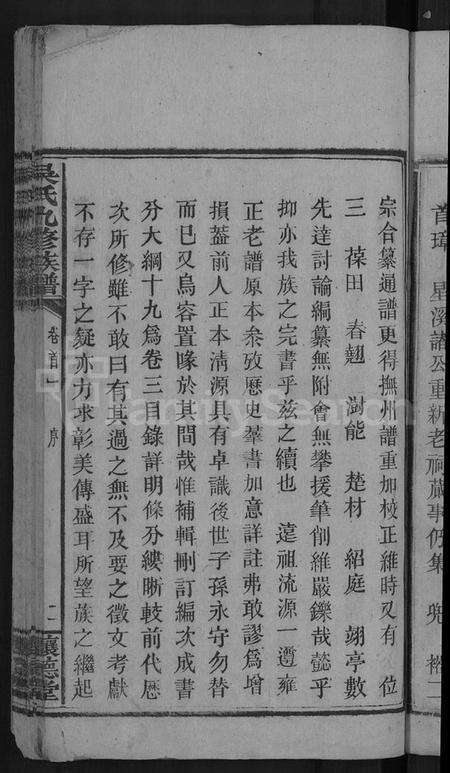 首璋 星溪諸公重新老祠蕆事仍集 兜 裕一
宗合纂通譜更得撫州譜重加校正維時又有 位
三 葆田 春翹 澍能 楚材 紹庭 翊亭數
先達討論編纂無附會無攀援筆削維嚴鑠哉懿乎
抑亦我族之完書乎茲之續也 遠祖流源一遵雍
正老譜原本叅攷歷史羣書加意詳註弗敢謬爲增
損蓋前人正本清源具有卓識後世子孫永守勿替
而已又烏容置喙於其間哉惟補輯刪訂編次成書
分大綱十九爲卷三目錄詳明條分縷晰較前代歷
次所修雖不敢曰有其過之無不及要之徵文考獻
不存一字之疑亦力求彰美傳盛耳所望族之繼起
吳氏九修族譜 卷首一 序 二 讓德堂
FamilySearch